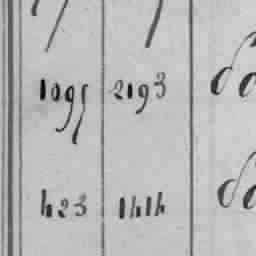 1095 2193 do
423 1414 do